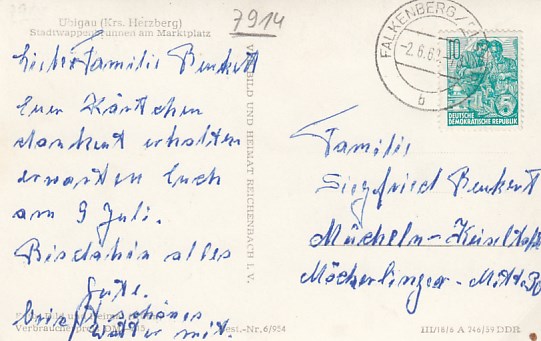 Übigau (Krs. Herzberg)
Stadtwappenbrunnen am Marktplatz
7914
Liebe Familie Benkert
Euer Kärtchen
dankend erhalten
erwarten Euch
am 9 Juli.
Bis dahin alles
Gute.
bringt schönes
Wetter mit.
VERLAG BILD UND HEIMAT REICHENBACH I. V.
Verbraucherpreis DM
Best.-Nr. 6/954
FALKENBERG
-2.6.62
b
10
5
DEUTSCHE
DEMOKRATISCHE REPUBLIK
Familie
Siegfried Benkert
Mücheln-
Möckerlinger-
III/18/6 A 746/59 DDR